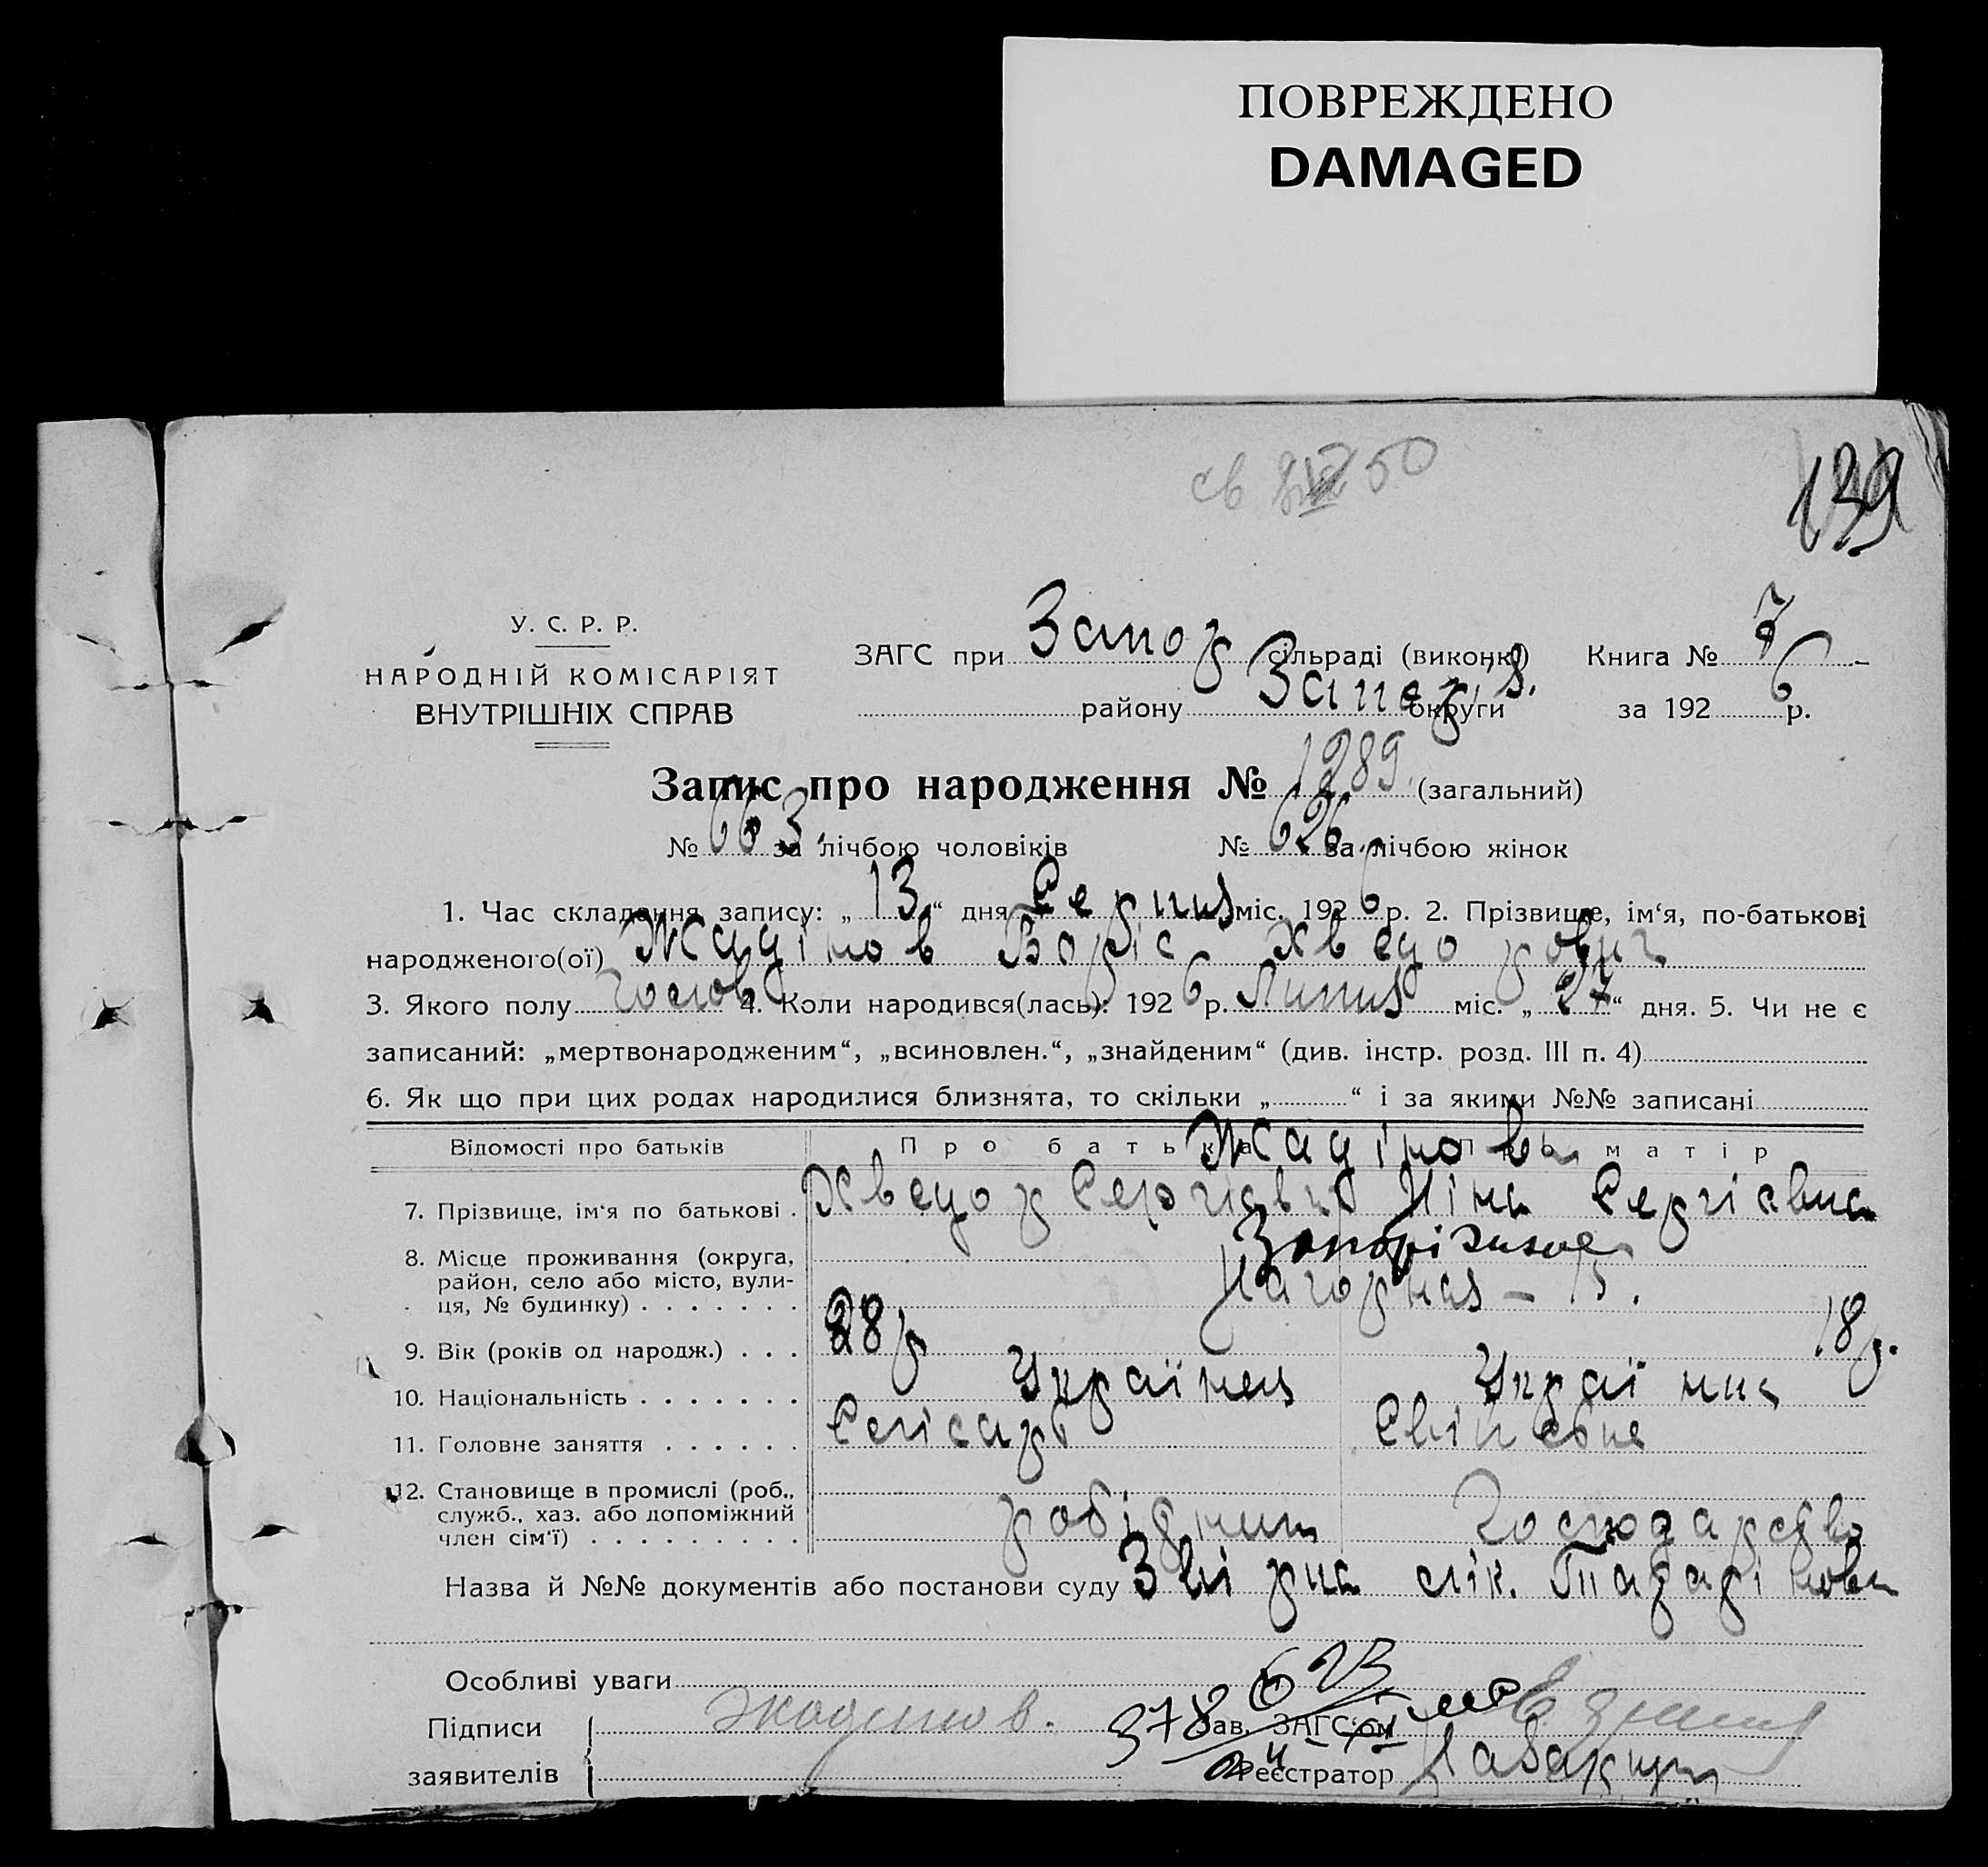 ПОВРЕЖДЕНО
DAMAGED
св 50
139
У. С. Р. Р.
НАРОДНІЙ КОМІСАРІЯТ
ВНУТРІШНІХ СПРАВ
ЗАГС при Запор сільраді (виконк.) Книга № 7
району Запор. округи за 1926 р.
Запис про народження № 1289 (загальний)
№ 663 за лічбою чоловіків № 626 за лічбою жінок
1. Час складання запису: „13“ дня Серпня міс. 1926 р. 2. Прізвище, ім‘я, по-батькові
народженого(ої) Жадінов Boріс Хведорович
3. Якого полу чолов 4. Коли народився(лась): 1926 р. Липня міс. „27“ дня. 5. Чи не є
записаний: „мертвонародженим“, „всиновлен.“, „знайденим“ (див. інстр. розд. III п. 4)
6. Як що при цих родах народилися близнята, то скільки „ “ і за якими №№ записані
Відомості про батьків Про батька Про матір
Жадінови
7. Прізвище, ім‘я по батькові . Хведор Сергієвич Ніна Сергієвна
8. Місце проживання (округа, район, село або місто, вулиця, № будинку) . . . . . . . Запоріжжє
Нагорная – 15.
9. Вік (років од народж.) . . . 28 р 18 р.
10. Національність . . . . . . . Українец Украінка
11. Головне заняття . . . . . . Слісарь
12. Становище в промислі (роб., служб., хаз. або допоміжний член сім‘ї) . . . . . . . . . робідник господарство
Назва й №№ документів або постанови суду лік.
Особливі уваги
Підписи Жадинов. Зав. ЗАГС‘ом
заявителів Реєстратор
378